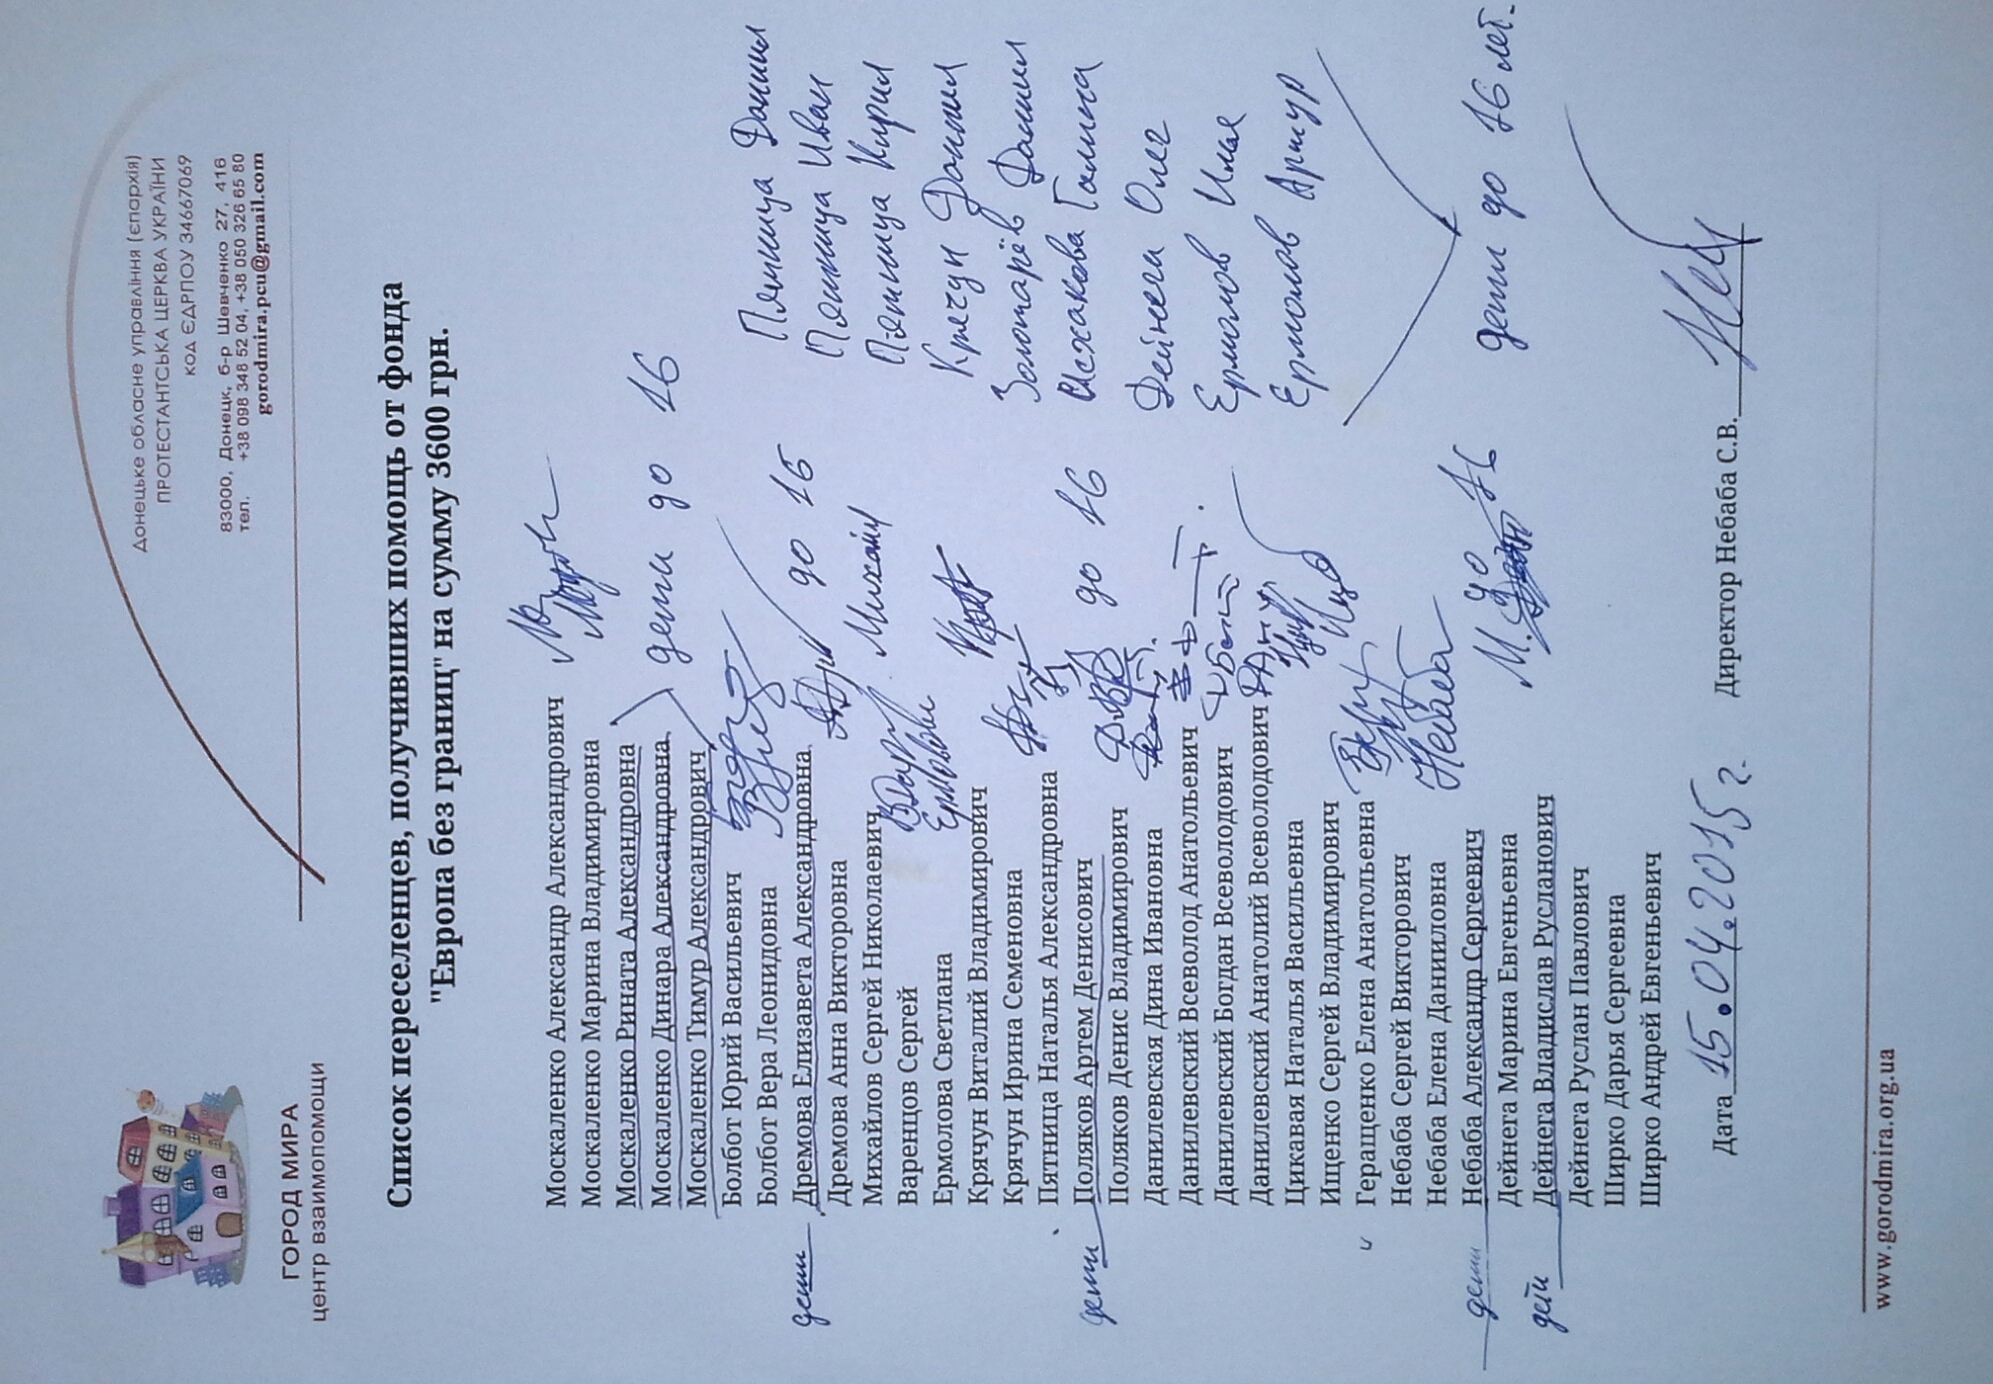 ГОРОД МИРА
центр взаимопомощи
Донецьке обласне управління (єпархія)
ПРОТЕСТАНТСЬКА ЦЕРКВА УКРАЇНИ
код ЄДРПОУ 34667069
83000, Донецк, б-р Шевченко 27, 416
тел. +38 098 348 52 04, +38 050 326 65 80
gorodmira.pcu@gmail.com
Список переселенцев, получивших помощь от фонда
"Европа без границ" на сумму 3600 грн.
Москаленко Александр Александрович
Москаленко Марина Владимировна
Москаленко Рината Александровна
Москаленко Динара Александровна дети до 16
Москаленко Тимур Александрович
Болбот Юрий Васильевич
Болбот Вера Леонидовна
дети Дремова Елизавета Александровна до 16
Дремова Анна Викторовна
Михайлов Сергей Николаевич Михайл
Варенцов Сергей
Ермолова Светлана
Крячун Виталий Владимирович
Крячун Ирина Семеновна
Пятница Наталья Александровна
дети Поляков Артем Денисович до 16
Поляков Денис Владимирович
Данилевская Дина Ивановна
Данилевский Всеволод Анатольевич
Данилевский Богдан Всеволодович
Данилевский Анатолий Всеволодович
Цикавая Наталья Васильевна
Иценко Сергей Владимирович
Геращенко Елена Анатольевна
Небаба Сергей Викторович
Небаба Елена Даниловна Небаба
дети Небаба Александр Сергеевич до 16
Дейнега Марина Евгеньевна
Дейнега Владислав Русланович
Дейнега Руслан Павлович
Ширко Дарья Сергеевна
Ширко Андрей Евгеньевич
Пятница Данил
Пятница Иван
Пятница Кирил
Крячун Данил
Золотарёв Данил
Исхакова Галина
Дейнега Олег
Ермолов Илья
Ермолов Артур
дети до 16 лет.
Дата 15.04.2015г. Директор Небаба С.В.
www.gorodmira.org.ua